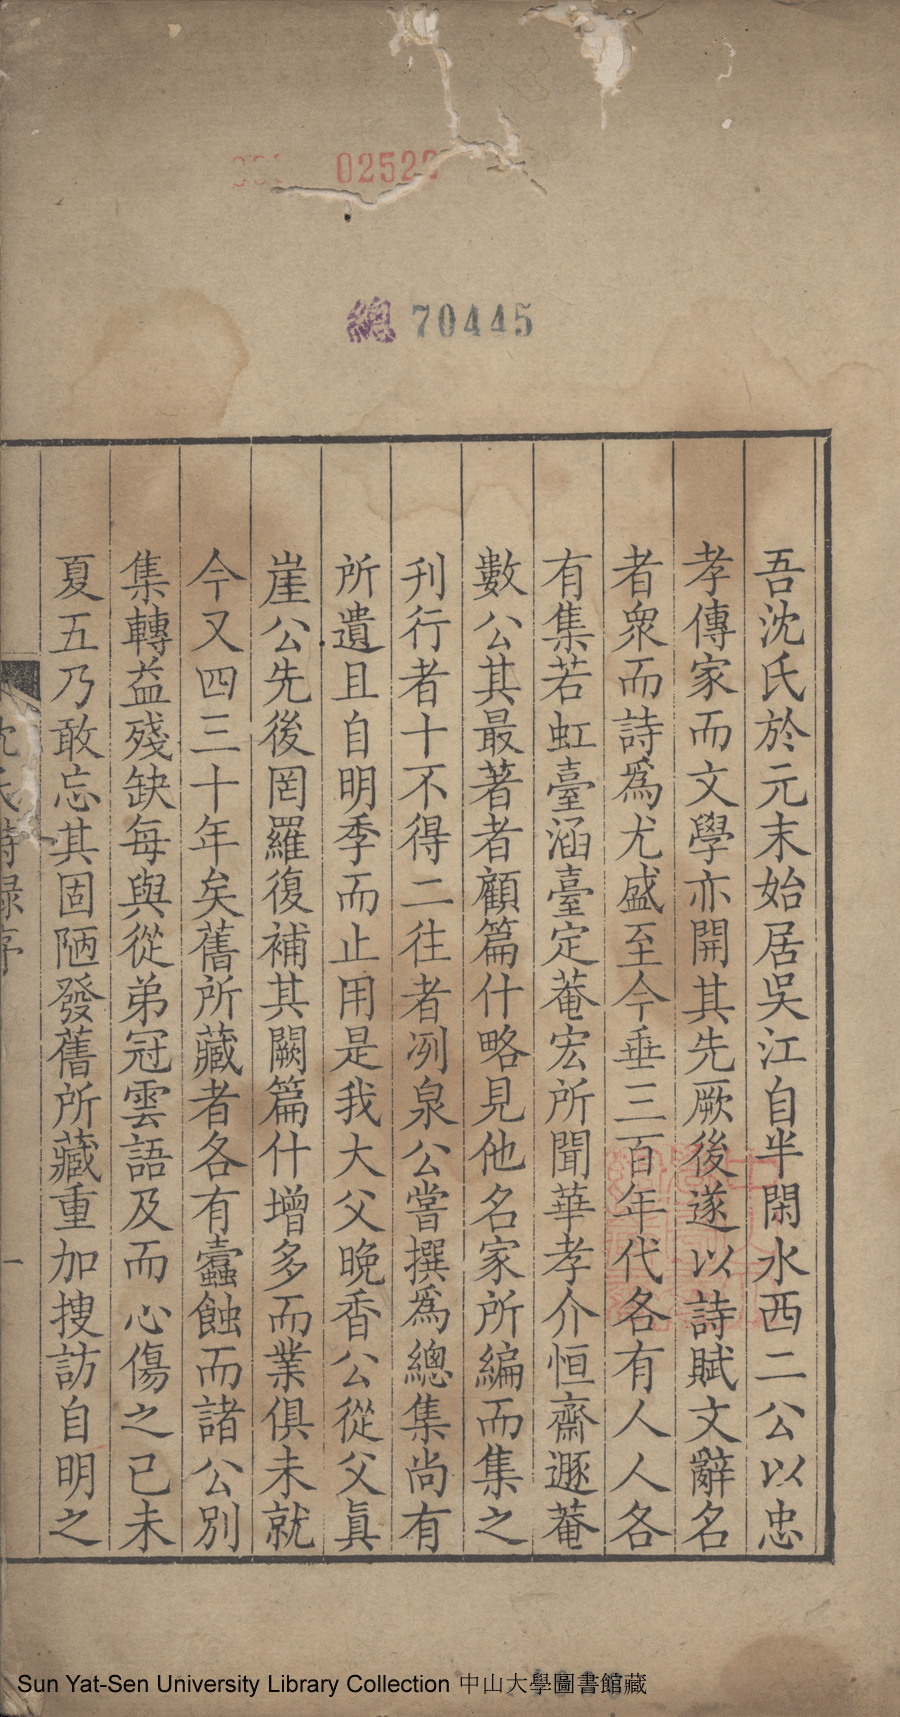 02522
總 70445
吾沈氏於元末始居吳江自半閑水西二公以忠
孝傳家而文學亦開其先厥後遂以詩賦文辭名
者衆而詩爲尤盛至今垂三百年代各有人人各
有集若虹臺涵臺定菴宏所聞華孝介恒齋遯菴
數公其最著者顧篇什略見他名家所編而集之
刊行者十不得二往者冽泉公嘗撰爲總集尚有
所遺且自明季而止用是我大父晚香公從父眞
崖公先後罔羅復補其闕篇什增多而業俱未就
今又四三十年矣舊所藏者各有蠹蝕而諸公別
集轉益殘缺每與從弟冠雲語及而心傷之已未
夏五乃敢忘其固陋發舊所藏重加搜訪自明之
沈氏詩録序
一
Sun Yat-Sen University Library Collection 中山大學圖書館藏